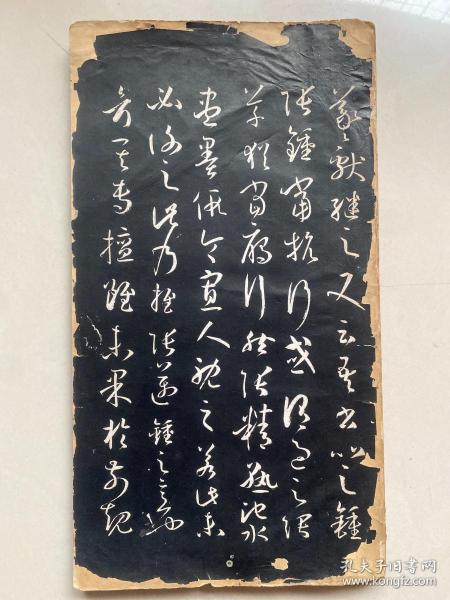 羲獻繼之又云吾書比之鍾
張鍾當抗行或謂過之張
草猶當雁行然張精熟池水
盡墨假令寡人耽之若此未
必謝之此乃推張邁鍾之意也
考其專擅雖未果於前規
孔夫子旧书网
www.kongfz.com